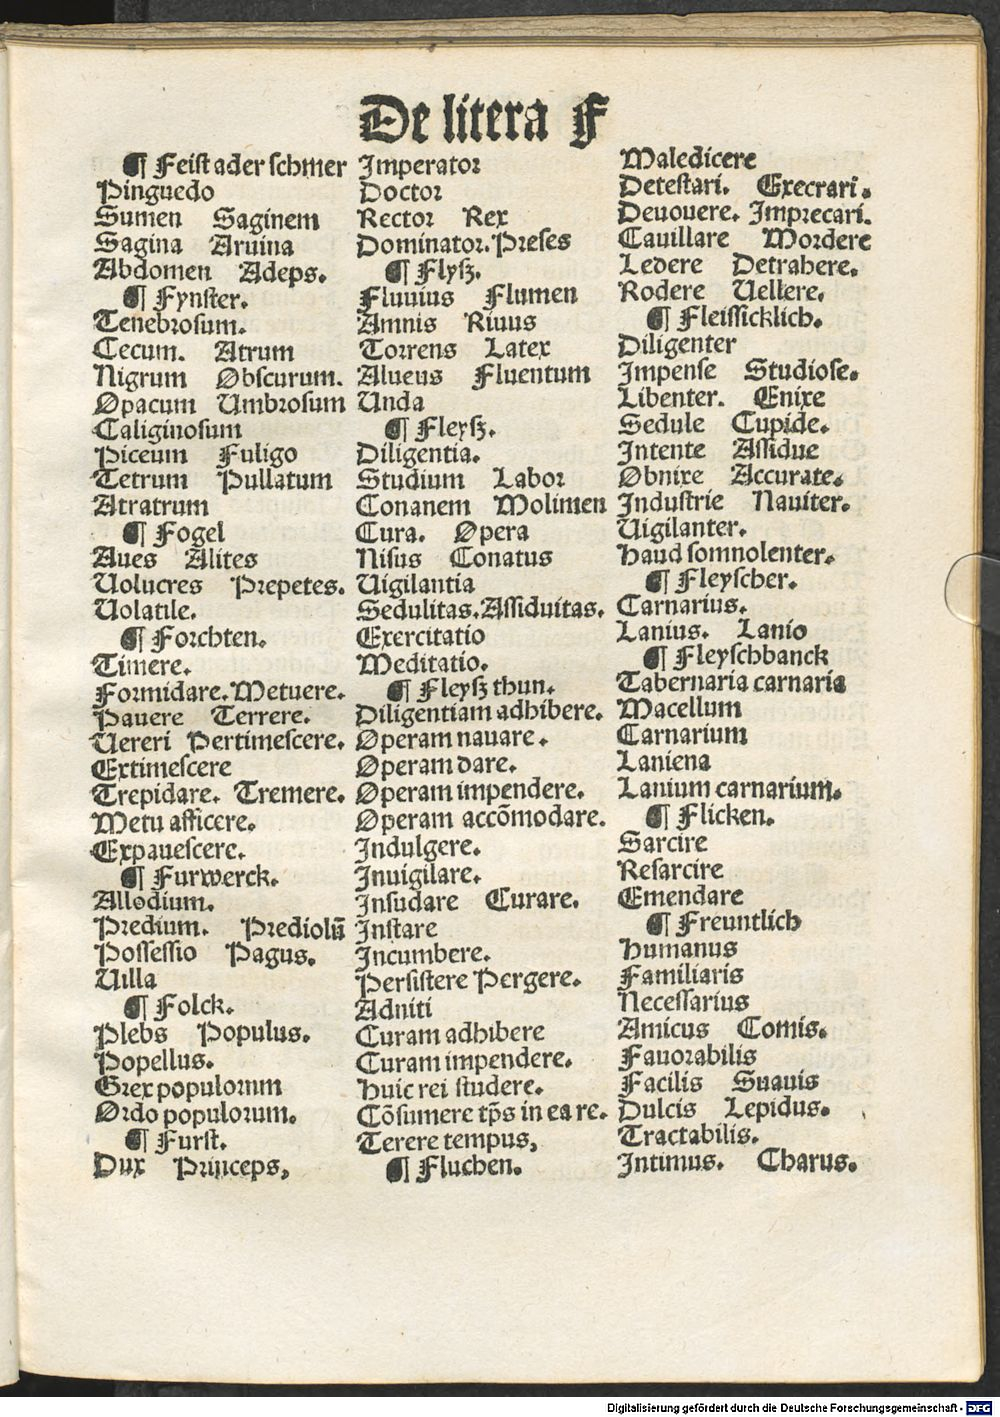 De litera F
¶ Feist ader schmer
Pinguedo
Sumen Saginem
Sagina Aruina
Abdomen Adeps.
¶ Fynster.
Tenebrosum.
Cecum. Atrum
Nigrum Obscurum.
Opacum Umbrosum
Caliginosum
Piceum Fuligo
Tetrum Pullatum
Atratrum
¶ Fogel
Aues Alites
Uolucres Prepetes.
Uolatile.
¶ Forchten.
Timere.
Formidare. Metuere.
Pauere Terrere.
Uereri Pertimescere.
Extimescere
Trepidare. Tremere.
Metu afficere.
Expauescere.
¶ Furwerck.
Allodium.
Predium. Prediolū
Possessio Pagus.
Uilla
¶ Folck.
Plebs Populus.
Popellus.
Grex populorum
Ordo populorum.
¶ Furst.
Dux Princeps,
Imperator
Doctor
Rector Rex
Dominator. Preses
¶ Flysz.
Fluuius Flumen
Amnis Riuus
Torrens Latex
Alueus Fluentum
Unda
¶ Fleysz.
Diligentia.
Studium Labor
Conanem Molimen
Cura. Opera
Nisus Conatus
Uigilantia
Sedulitas. Assiduitas.
Exercitatio
Meditatio.
¶ Fleysz thun.
Diligentiam adhibere.
Operam nauare.
Operam dare.
Operam impendere.
Operam accōmodare.
Indulgere.
Inuigilare.
Insudare Curare.
Instare
Incumbere.
Persistere Pergere.
Adniti
Curam adhibere
Curam impendere.
Huic rei studere.
Cōsumere tp̄s in ea re.
Terere tempus,
¶ Fluchen.
Maledicere
Detestari. Execrari.
Deuouere. Imprecari.
Cauillare Mordere
Ledere Detrahere.
Rodere Uellere.
¶ Fleissicklich.
Diligenter
Impense Studiose.
Libenter. Enixe
Sedule Cupide.
Intente Assidue
Obnixe Accurate.
Industrie Nauiter.
Uigilanter.
Haud somnolenter.
¶ Fleyscher.
Carnarius.
Lanius. Lanio
¶ Fleyschbanck
Tabernaria carnaria
Macellum
Carnarium
Laniena
Lanium carnarium.
¶ Flicken.
Sarcire
Resarcire
Emendare
¶ Freuntlich
Humanus
Familiaris
Necessarius
Amicus Comis.
Fauorabilis
Facilis Suauis
Dulcis Lepidus.
Tractabilis.
Intimus. Charus.
Digitalisierung gefördert durch die Deutsche Forschungsgemeinschaft - DFG